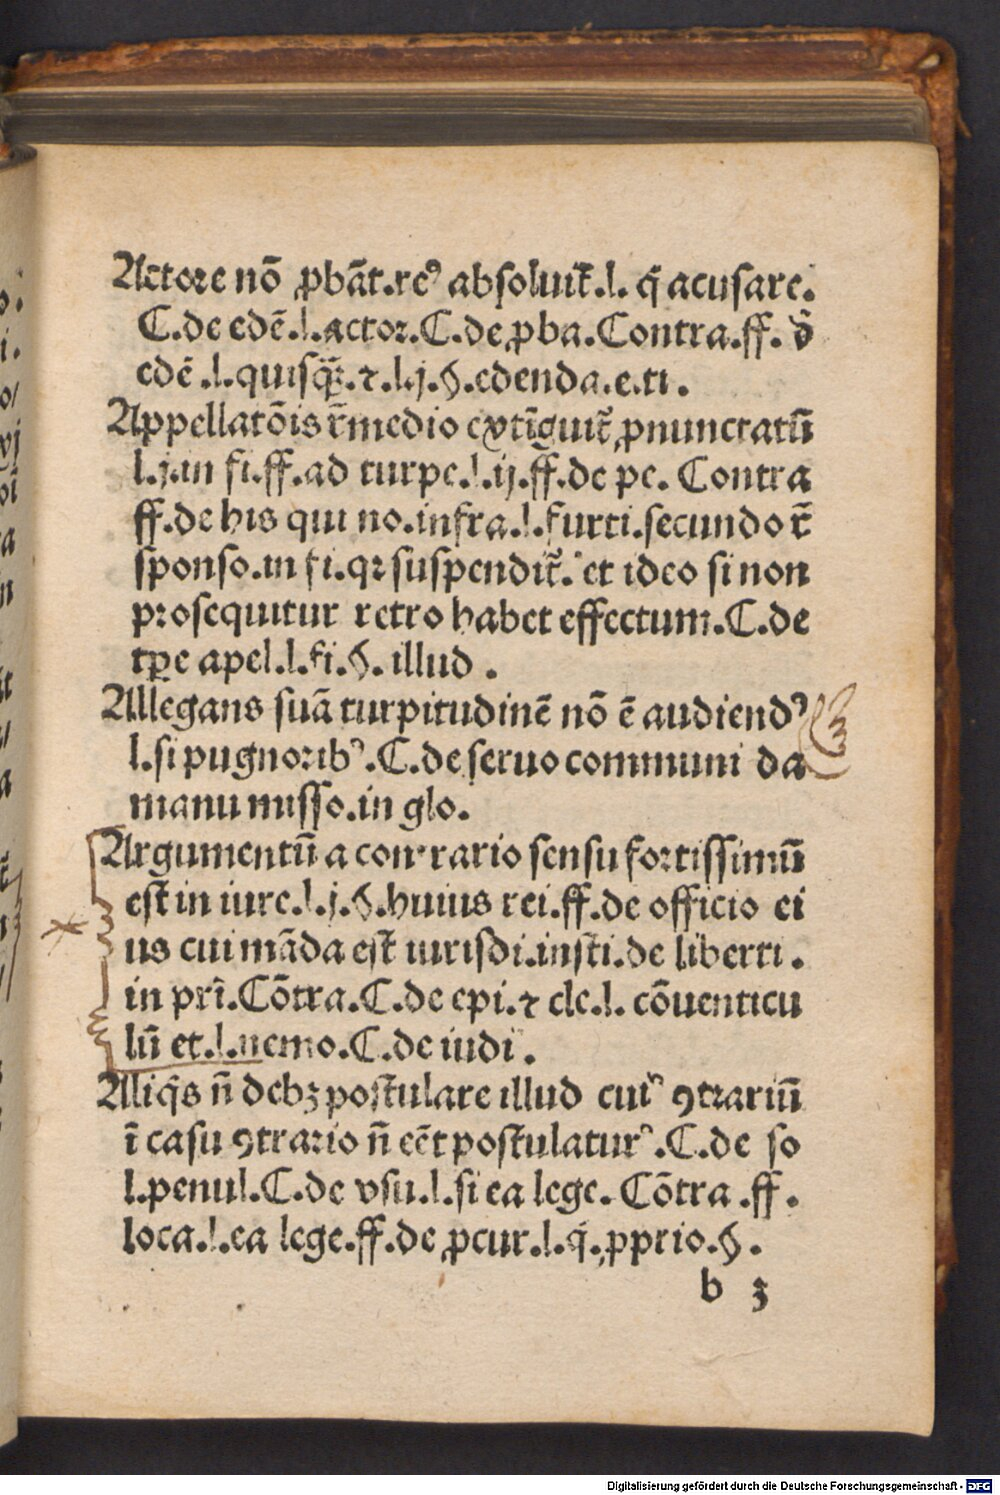 Actore nō ꝓbāt.reꝰ absoluit᷑.l. q̄ acusare.
C.de edē.l.actor.C.de ꝓba.Contra.ff. ð
edē.l.quisqꝫ.⁊.l.j.§.edenda.e.ti.
Appellatōis r̄medio extīguit᷑ ꝓnunctiatū
l.j.in fi.ff.ad turpe.l.ij.ff.de pe. Contra
ff.de his qui no.infra.l.furti.secundo r̄
sponso.in fi.qꝛ suspendit᷑. et ideo si non
prosequitur retro habet effectum.C.de
tꝑe apel.l.fi.§. illud .
Allegans suā turpitudinē nō ē audiendꝰ
l.si pugnoribꝰ.C.de seruo communi da
manu misso.in glo.
Argumentū a contrario sensu fortissimū
est in iure.l.j.§.huius rei.ff.de officio ei
us cui māda est iurisdi.insti.de liberti.
in prī.Cōtra.C.de epi.⁊ cle.l. cōuenticu
lū et.l.nemo.C.de iudi .
Aliq̄s n̄ debꝫ postulare illud cuiꝰ ꝯtrariū
ī casu ꝯtrario n̄ eēt postulaturꝰ.C.de so
l.penul.C.de vsu.l.si ea lege. Cōtra .ff.
loca.l.ea lege.ff.de ꝓcur.l.q̄.ꝓprio.§ .
b 3
Digitalisierung gefördert durch die Deutsche Forschungsgemeinschaft - DFG